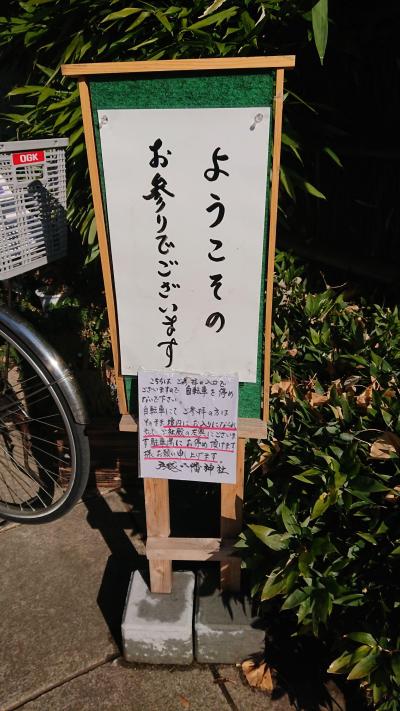 OGK
ようこその
お参りでございます
こちらは ご参拝の入口で
ございますので 自転車を停め
ないで下さい。
自転車にて ご参拝の方は
そのまま境内にお入りになられ
ご社殿の左奥にございま
す駐車場にお停め頂けます
様、お願い申し上げます。
八幡神社